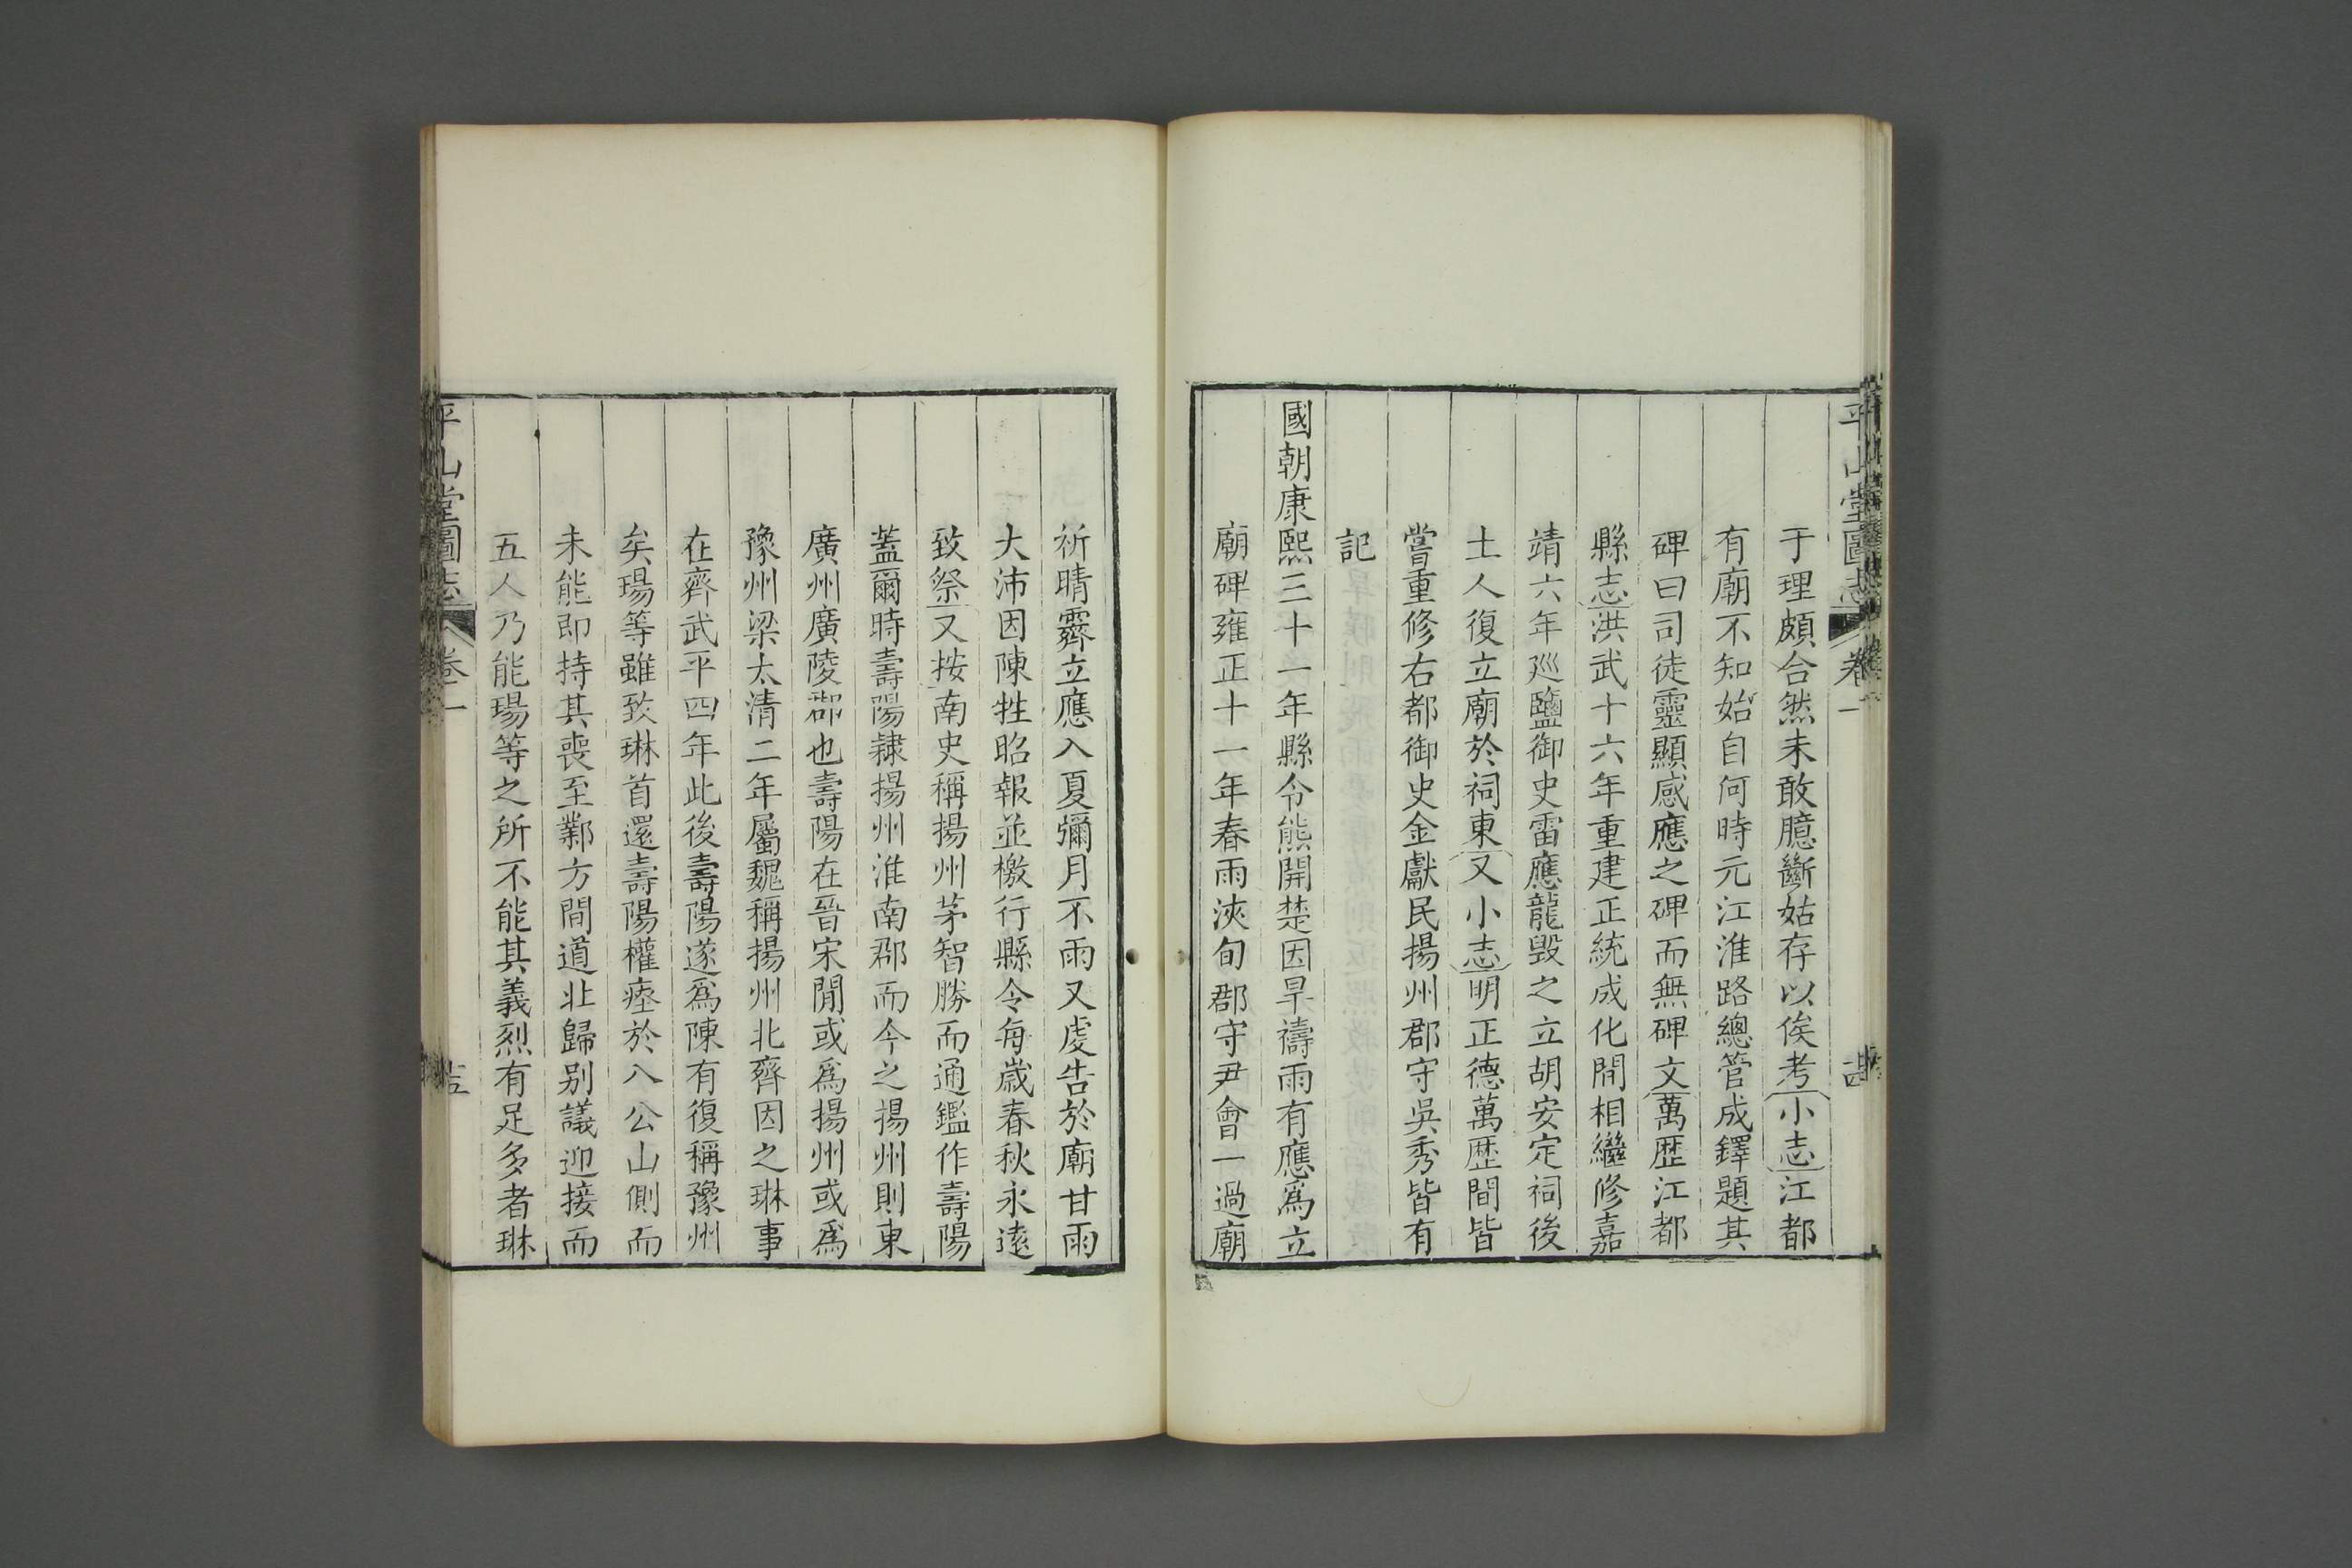 平山堂圖志 卷一
于理頗合然未敢臆斷姑存以俟考小志江都
有廟不知始自何時元江淮路總管成鐸題其
碑曰司徒靈顯感應之碑而無碑文萬歴江都
縣志洪武十六年重建正統成化閒相繼修嘉
靖六年廵鹽御史雷應龍毁之立胡安定祠後
土人復立廟於祠東又小志明正德萬歴間皆
嘗重修右都御史金獻民揚州郡守吳秀皆有
記
國朝康熙三十一年縣令熊開楚因旱禱雨有應爲立
廟碑雍正十一年春雨浹旬郡守尹會一過廟
祈晴霽立應入夏彌月不雨又虔告於廟甘雨
大沛因陳牲昭報並檄行縣令每歲春秋永遠
致祭又按南史稱揚州茅智勝而通鑑作壽陽
蓋爾時壽陽隷揚州淮南郡而今之揚州則東
廣州廣陵郡也壽陽在晉宋閒或爲揚州或爲
豫州梁太清二年屬魏稱揚州北齊因之琳事
在齊武平四年此後壽陽遂爲陳有復稱豫州
矣瑒等雖致琳首還壽陽權瘞於八公山側而
未能即持其喪至鄴方間道北歸别議迎接而
五人乃能瑒等之所不能其義烈有足多者琳
平山堂圖志 卷一